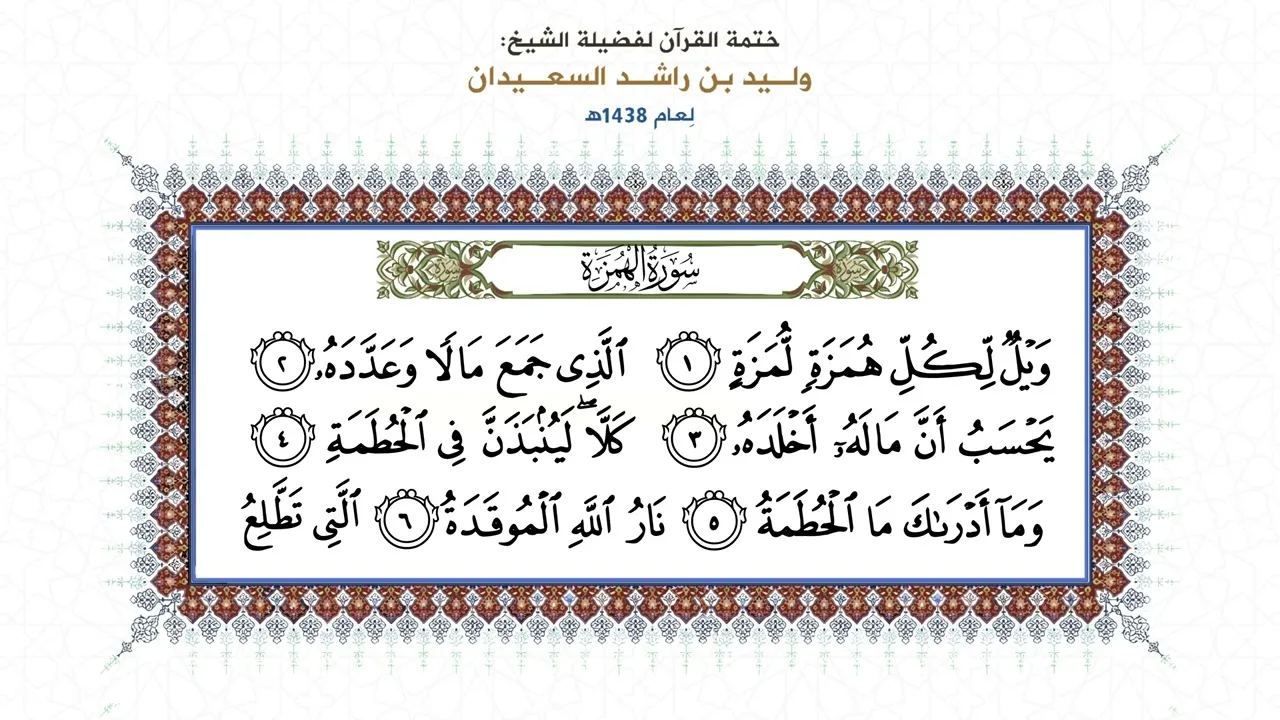 ختمة القرآن لفضيلة الشيخ:
وليد بن راشد السعيدان
لِعام 1438هـ
سُورَةُ الْهُمَزَةِ
سورة
سورة
وَيْلٌ لِّكُلِّ هُمَزَةٍ لُّمَزَةٍ ١ ٱلَّذِى جَمَعَ مَالًا وَعَدَّدَهُۥ ٢
يَحْسَبُ أَنَّ مَالَهُۥٓ أَخْلَدَهُۥ ٣ كَلَّا ۖ لَيُنۢبَذَنَّ فِى ٱلْحُطَمَةِ ٤
وَمَآ أَدْرَىٰكَ مَا ٱلْحُطَمَةُ ٥ نَارُ ٱللَّهِ ٱلْمُوقَدَةُ ٦ ٱلَّتِى تَطَّلِعُ